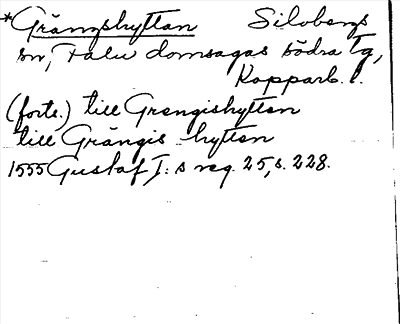 *Grängshyttan Silobergs
sn, Falu domsagas södra tg,
Kopparb. l.
(forts.) till Grengishytten
till Grängis hytten
1555 Gustaf I:s reg. 25, s. 228.